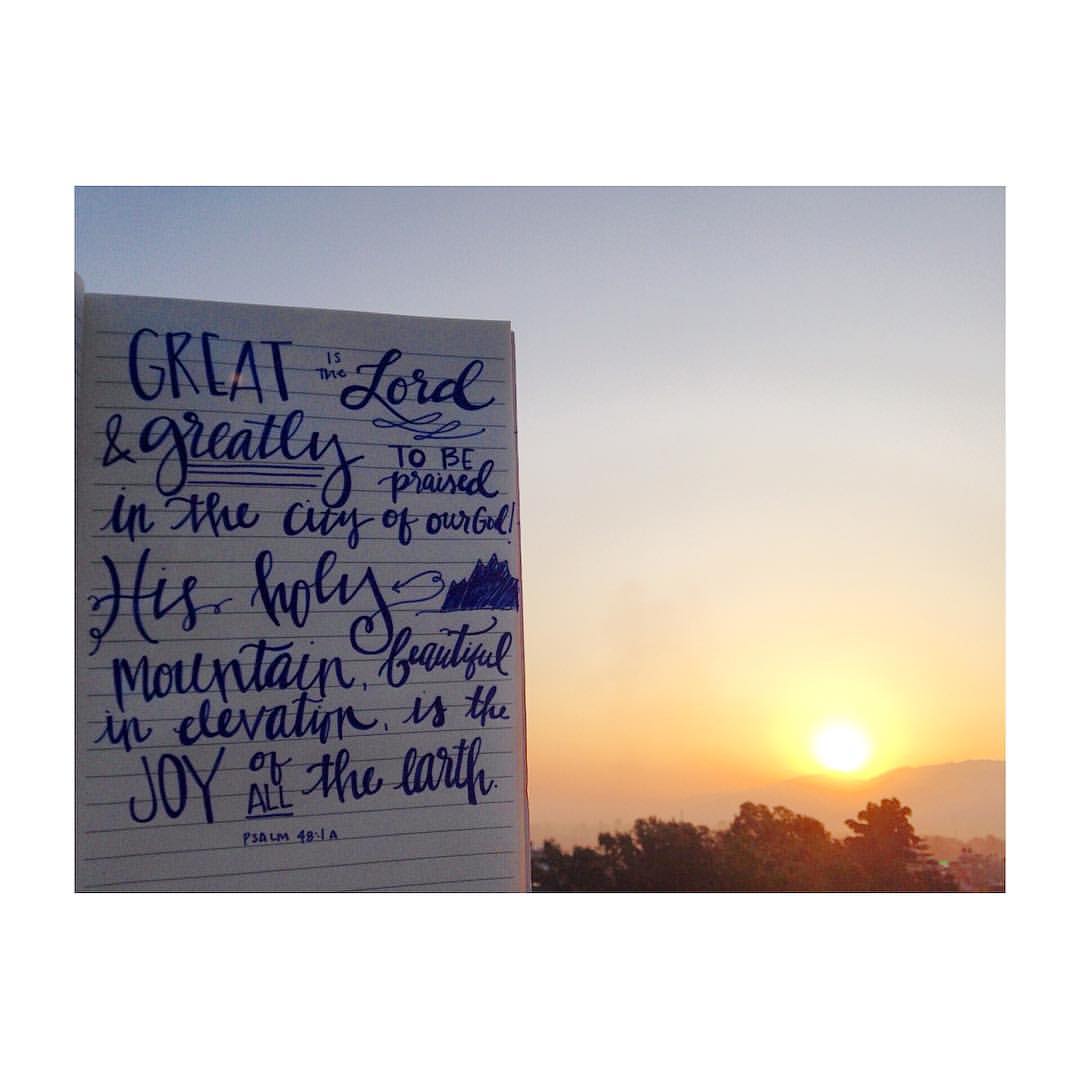 GREAT IS The Lord
& greatly TO BE praised
in the city of our God!
His holy
mountain, beautiful
in elevation, is the
JOY of ALL the earth.
PSALM 48:1A